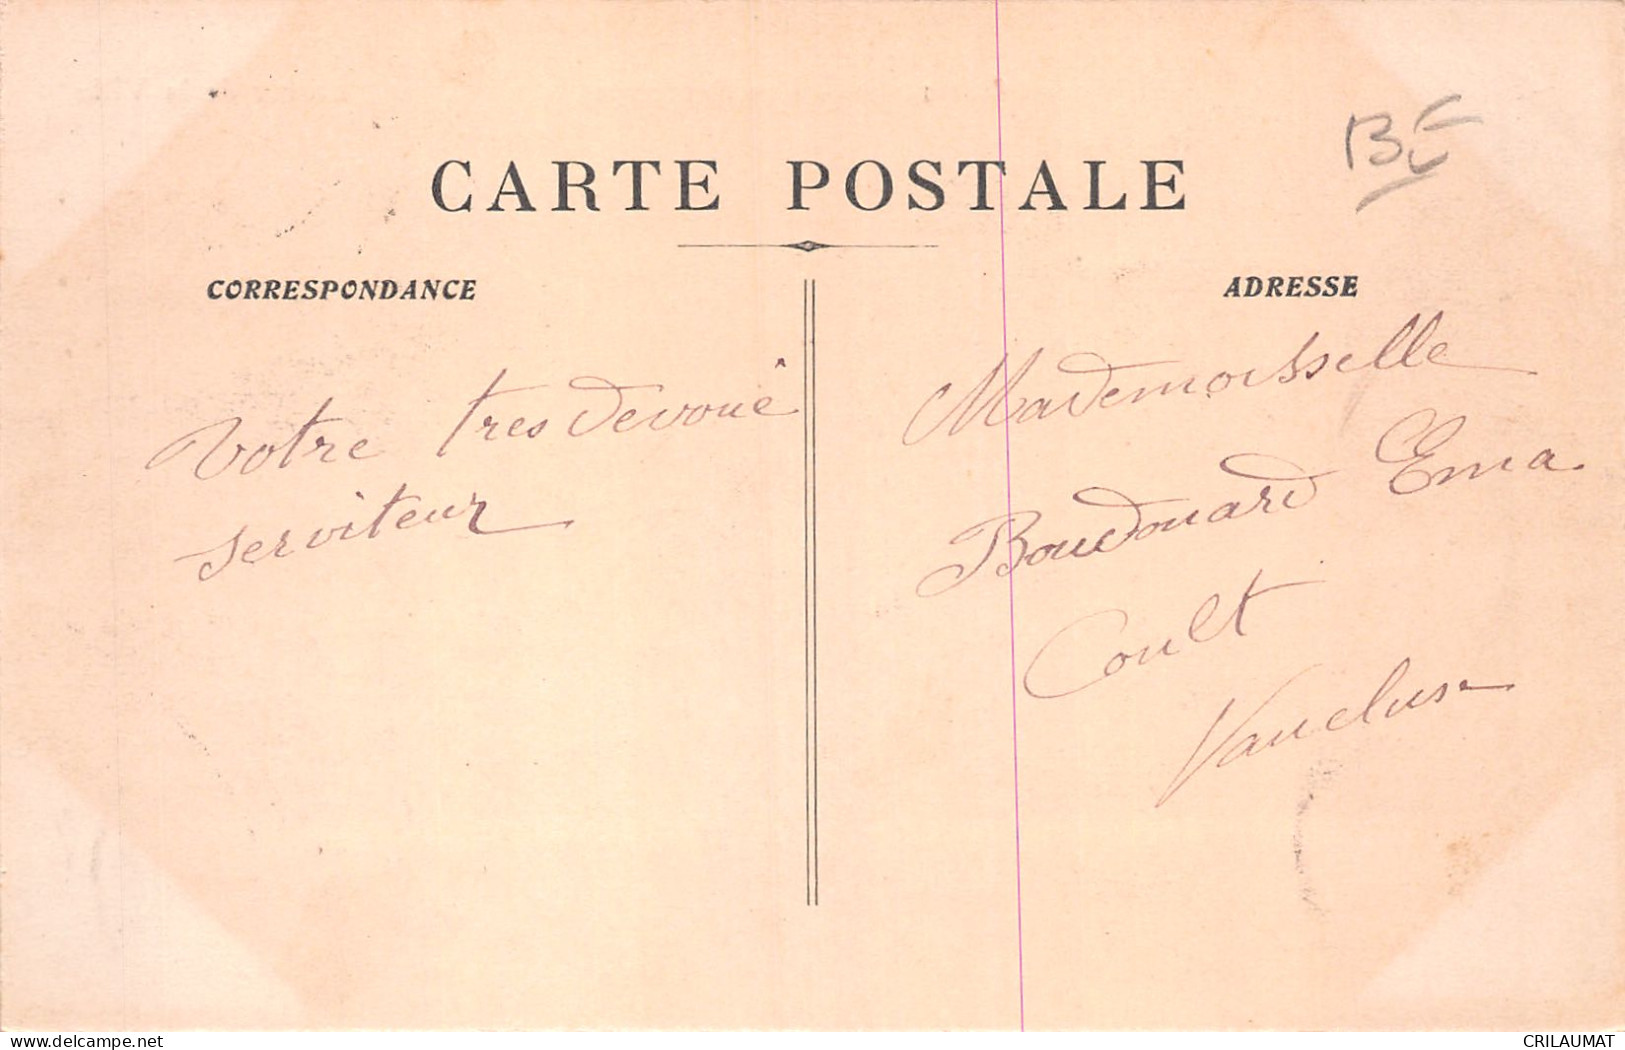 BE
CARTE POSTALE
CORRESPONDANCE
Votre tres devoué
serviteur
ADRESSE
Mademoisselle
Boudouard Ema
Coult
Vaucluse
delcampe.net
CRILAUMAT